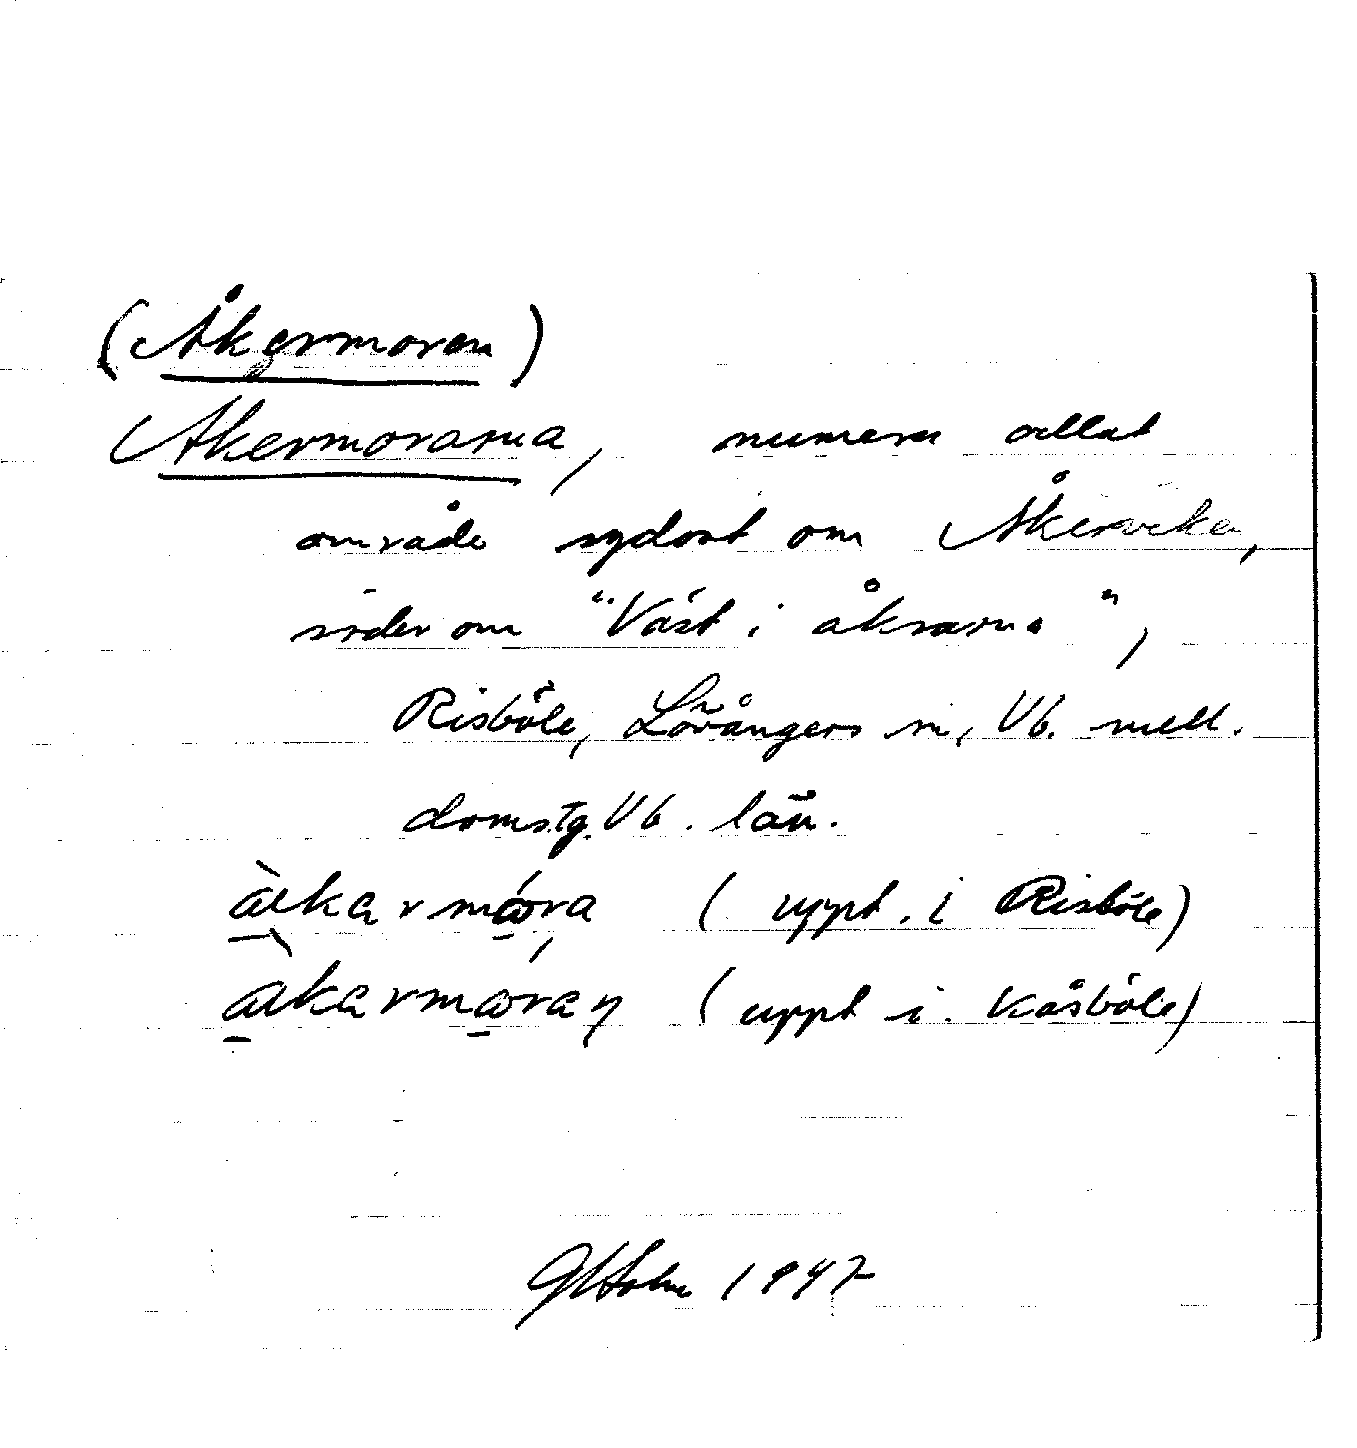 (Åkermoren)
Åkermorarna, numera odlat
område sydost om Åkerviken,
söder om "Väst i åkrarna",
Risböle, Lövångers sn, Vb. mell.
domstg. Vb. län.
(uppt. i Risböle)
(uppt i. Kåsböle)
GHolm 1947